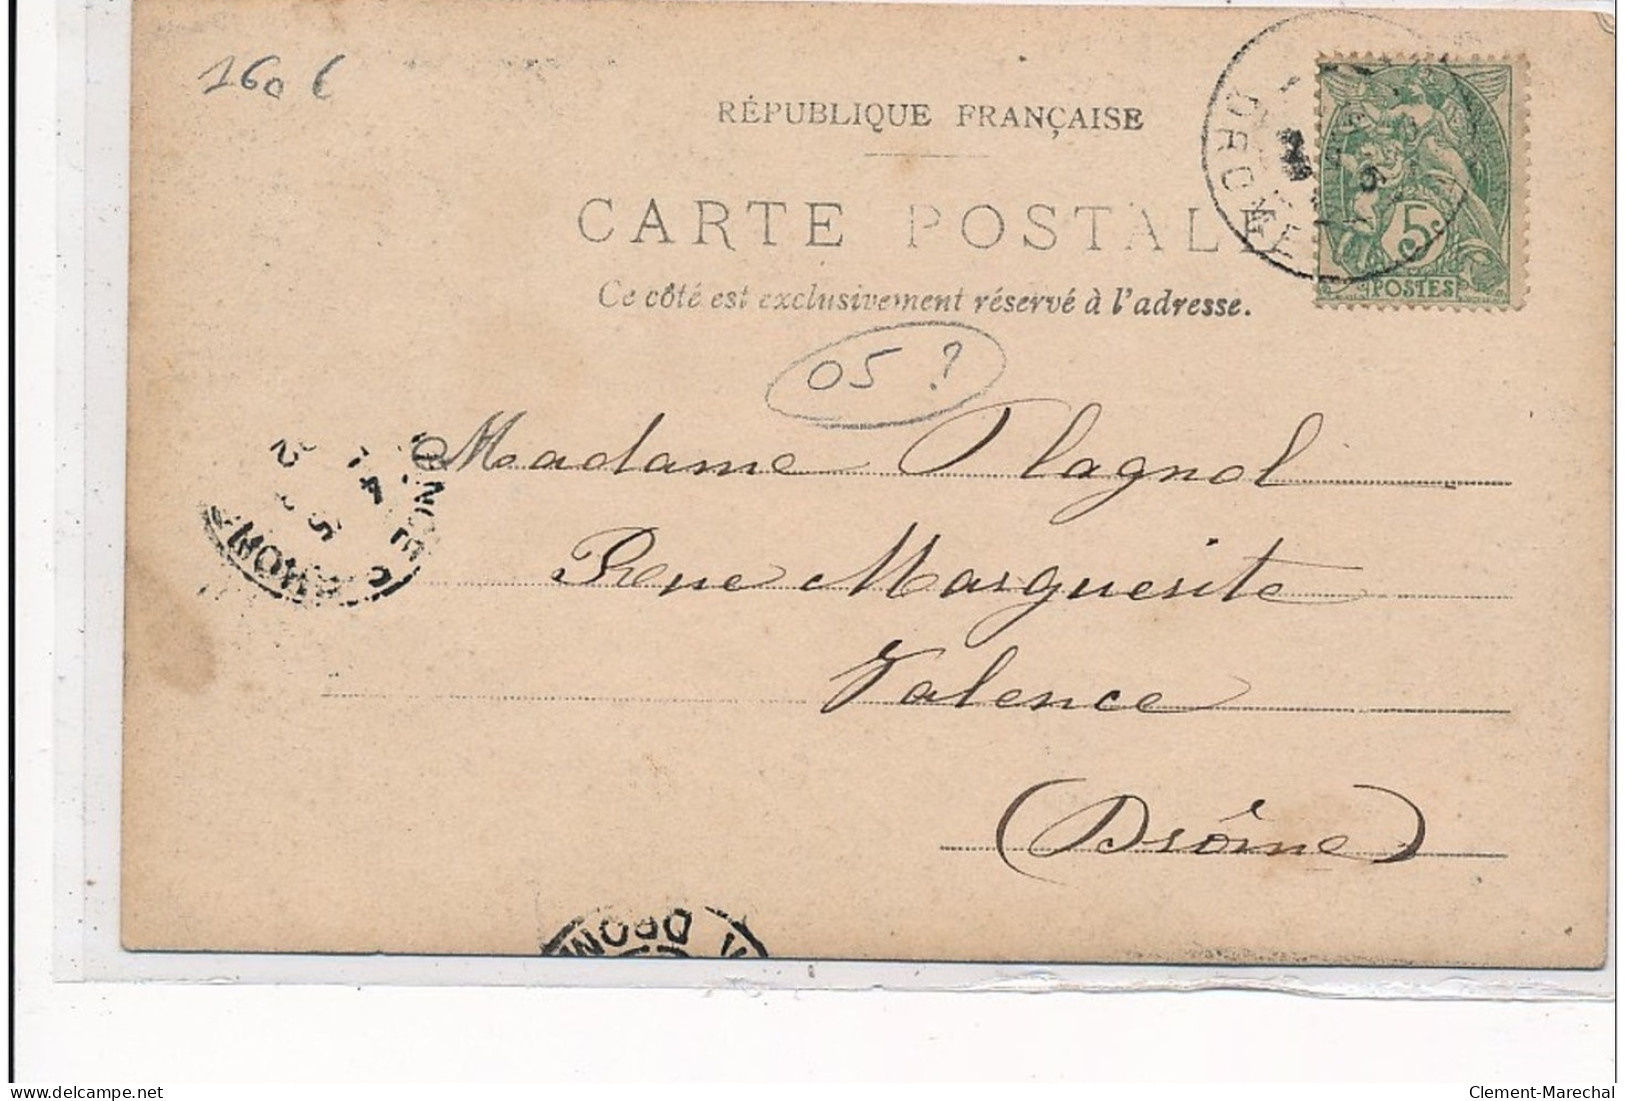 160 €
RÉPUBLIQUE FRANÇAISE
CARTE POSTALE
Ce côté est exclusivement réservé à l'adresse.
DROME
5
POSTES
05 ?
Madame Plagnol
Rue Marguerite
Valence
(Drôme)
delcampe.net
Clement-Marechal